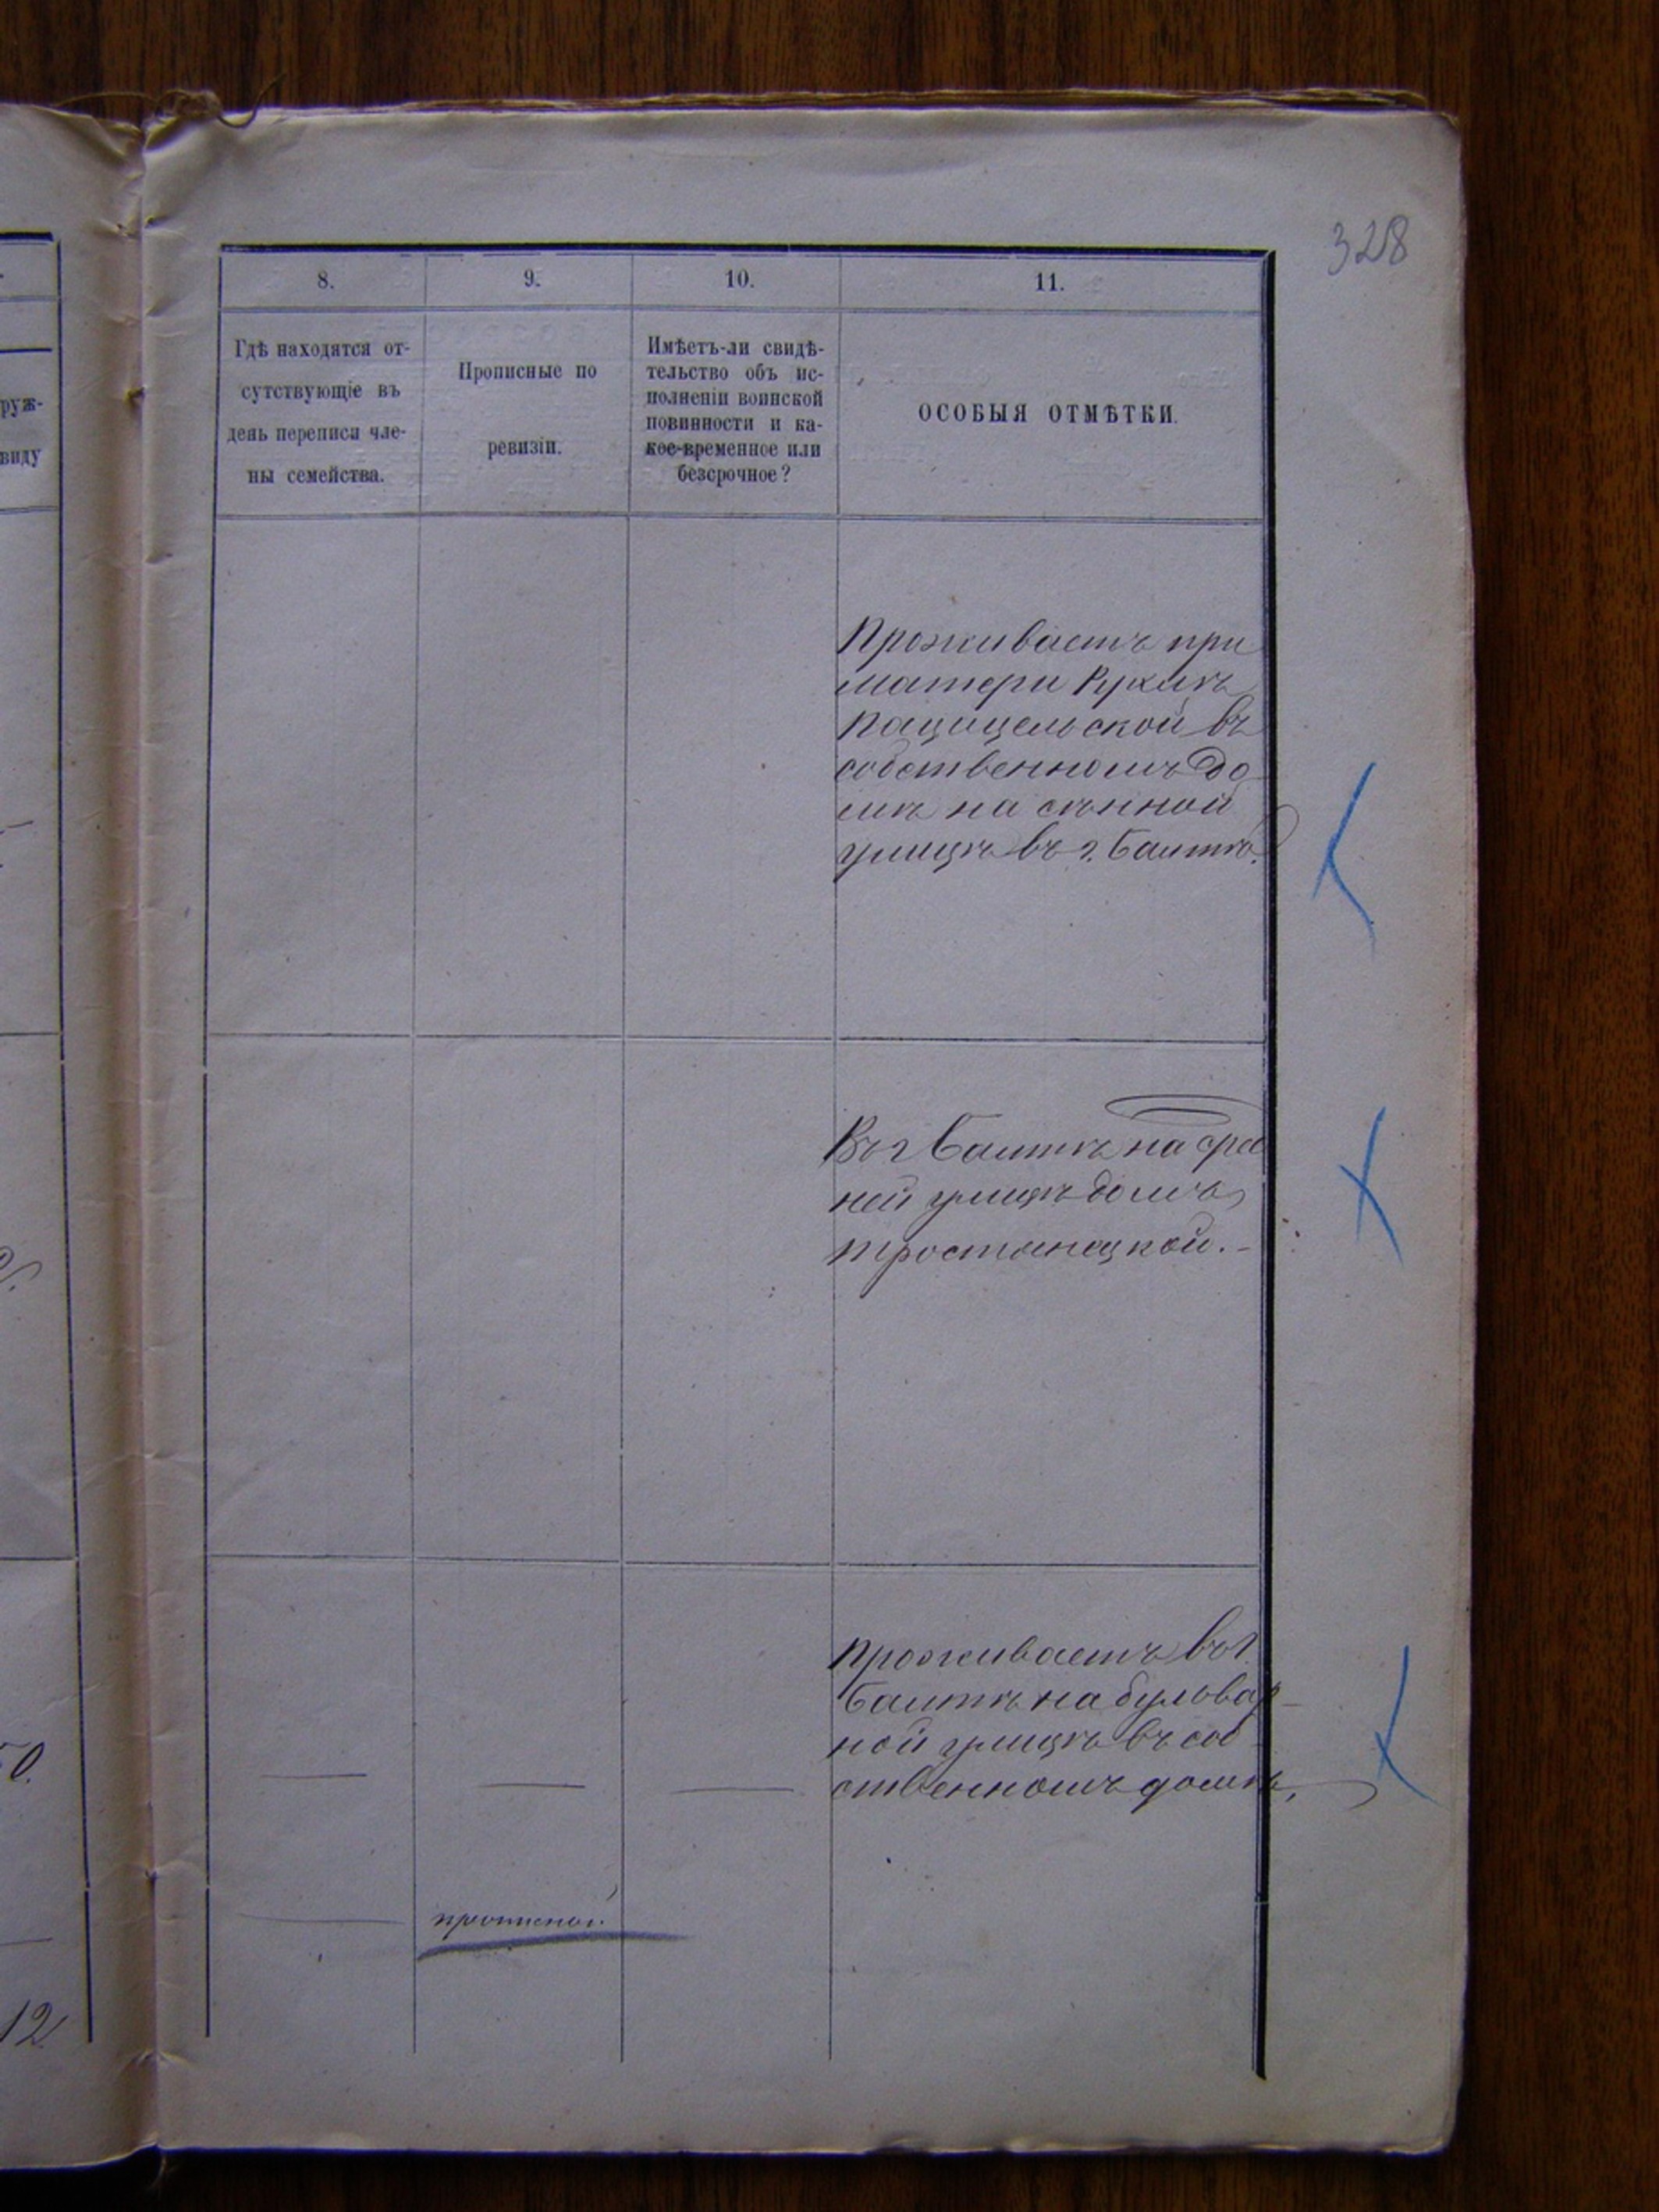 328
8.
9.
10.
11.
Гдѣ находятся от-
сутствующіе въ
день переписи чле-
ны семейства.
Прописные по
ревизіи.
Имѣетъ-ли свидѣ-
тельство объ ис-
полненіи воинской
повинности и ка-
кое-временное или
безсрочное?
ОСОБЫЯ ОТМѢТКИ.
руж-
виду
Проживаетъ при
матери
въ
собственномъ до-
мѣ на сѣнной
улицѣ въ г. Балтѣ.
Въ г Балтѣ на сред
ней улицѣ домъ
Тростянецкой. -
Проживаетъ въ г.
Балтѣ на бульвар-
ной улицѣ въ соб-
ственномъ домѣ,
0.
прописной.
12